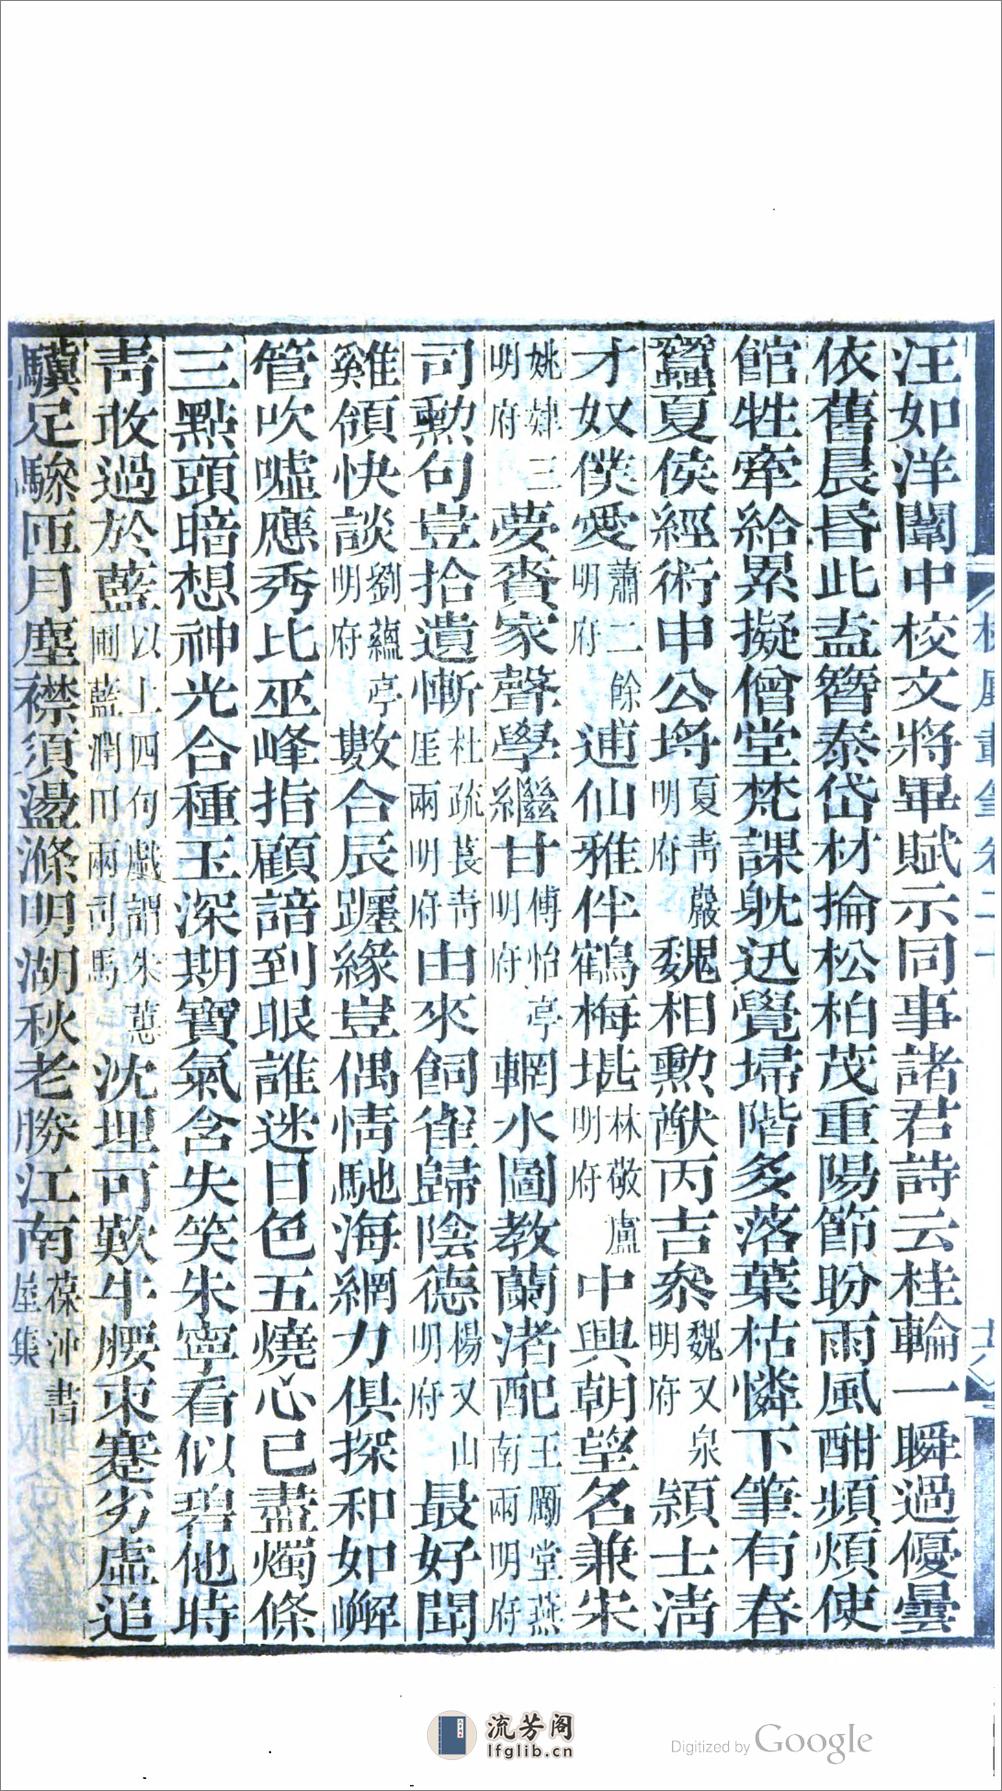 汪如洋闈中校文將畢賦示同事諸君詩云桂輪一瞬過優曇
依舊晨昏此盍簪泰岱材掄松柏茂重陽節盼雨風酣頻煩使
館牲牽給累擬僧堂梵課躭迅覺埽階多落葉枯憐下筆有春
蠶夏侯經術申公埒夏靑巖明府魏相勲猷丙吉叅魏又泉明府穎士淸
才奴僕愛蕭二餘明府逋仙雅伴鶴梅堪林敬廬明府中興朝望名兼宋
姚肂三明府夢賚家聲學繼甘傅怡亭明府輞水圖敎蘭渚配王勵堂燕南兩明府
司勲句豈拾遺慚杜疏莨靑厓兩明府由來飼雀歸陰德楊又山明府最好聞
雞領快談劉蘊亭明府數合辰躔緣豈偶情馳海網力俱探和如嶰
管吹噓應秀比巫峰指顧諳到眼誰迷日色五燒心已盡燭條
三點頭暗想神光合種玉深期寶氣含失笑朱寧看似碧他時
靑敢過於藍以上四句戲謂朱蕙圃藍潤田兩司馬沈埋可歎牛腰束蹇劣虛追
驥足驂匝月塵襟須盪滌明湖秋老勝江南葆沖書屋集
流芳阁
lfglib.cn
Digitized by Google